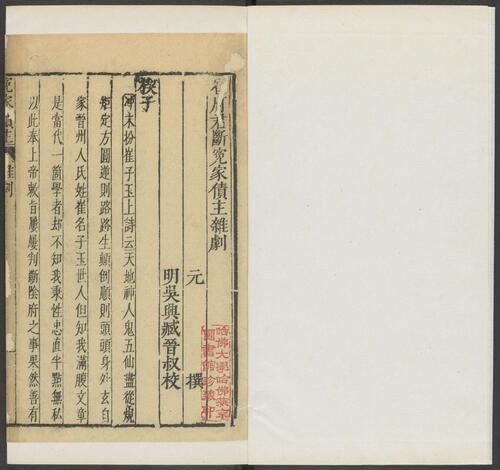 崔府君斷冤家債主雜劇
元 撰
明吳興臧晉叔校
哈佛大學哈佛燕京
圖書館珍藏印
楔子
冲末扮崔子玉上詩云天地神人鬼五仙盡從規
矩定方圓逆則路路生顛倒順則頭頭身外玄自
家晉州人氏姓崔名子玉世人但知我滿腹文章
是當代一箇學者却不知我秉性忠直半點無私
以此奉上帝敕旨屢屢判斷陰府之事果然善有
冤家債主 雜劇